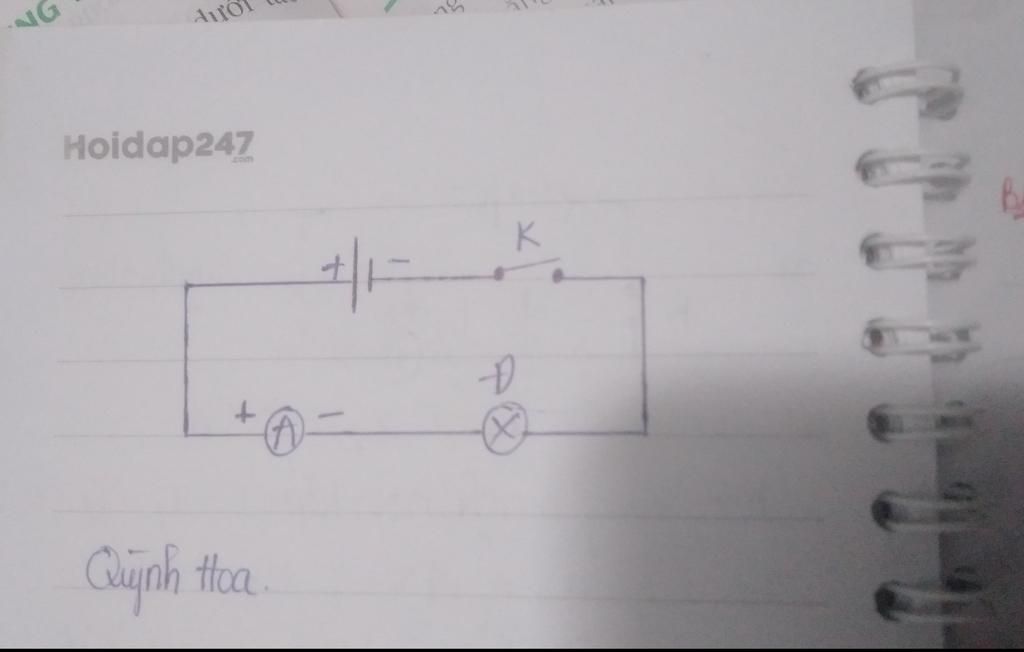 NG
dưới
Hoidap247
.com
K
+ -
Đ
+ A -
X
Quỳnh Hoa.